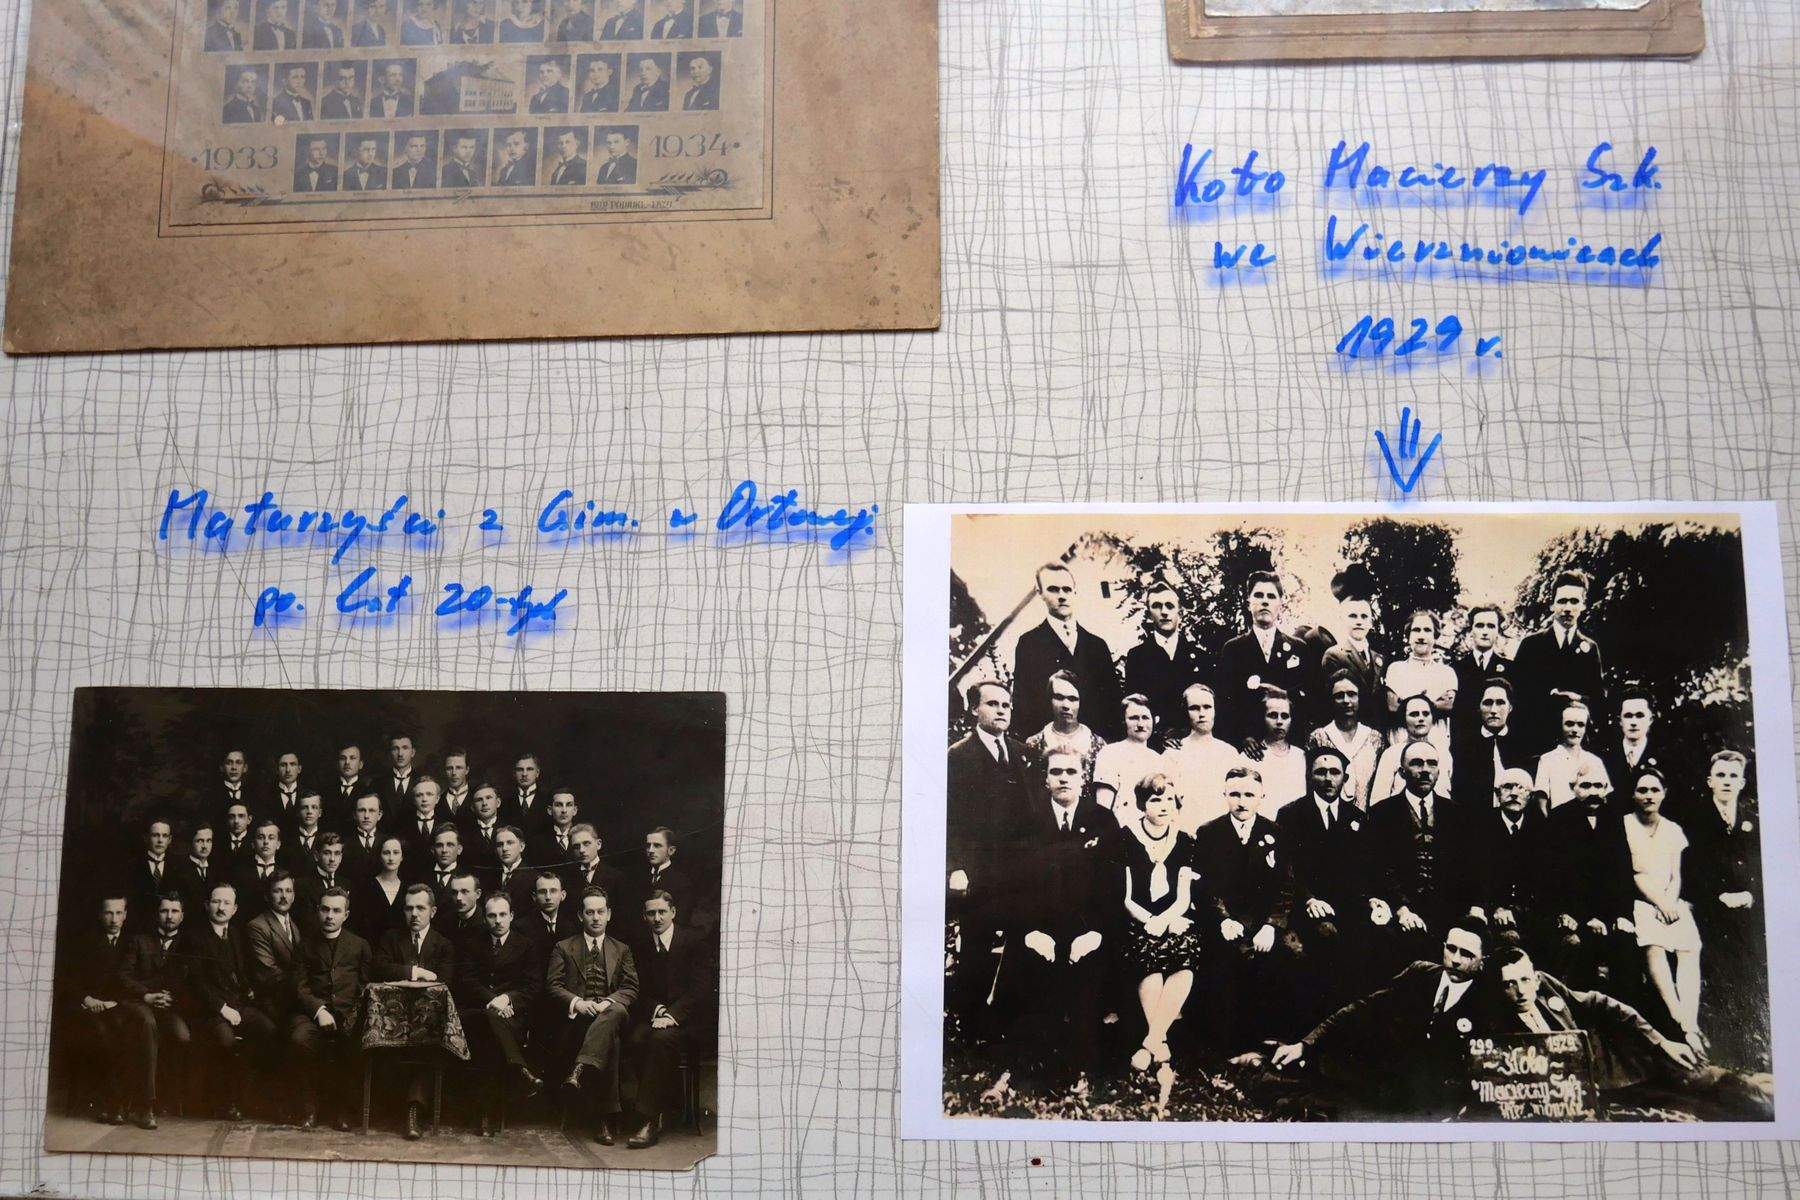 1933 1934
Koło Macierzy Szk.
we Wierzniowicach
1929 r.
Maturzyści z Gim. w Orłowej
po. Lat 20-tych
29.9. 1929.
Koło
Macierzy Szk.